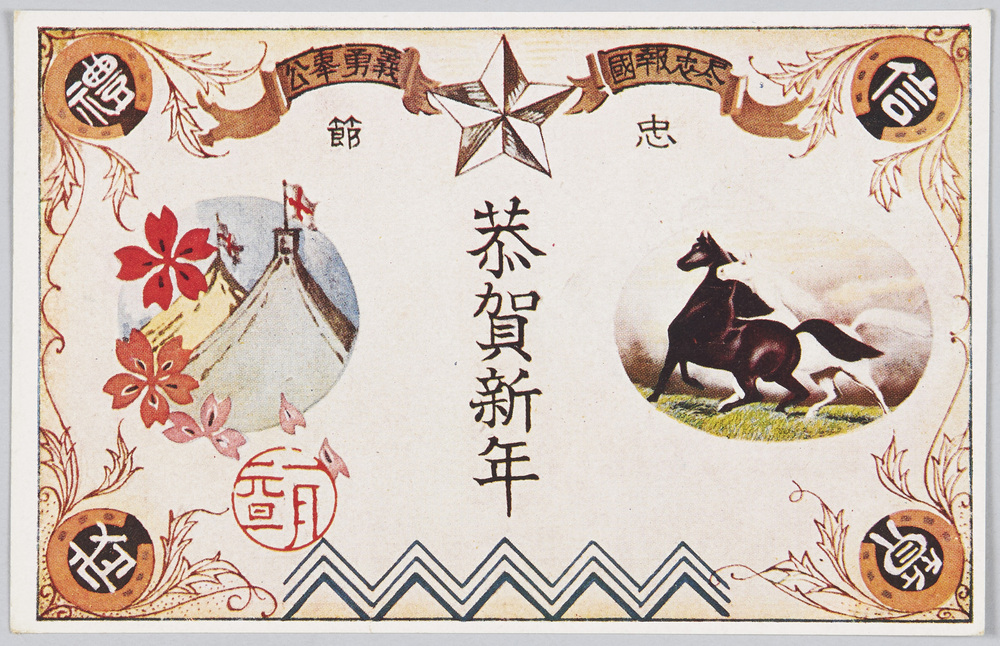 尽忠報國
義勇奉公
禮
信
忠節
恭賀新年
一月元旦
武
質